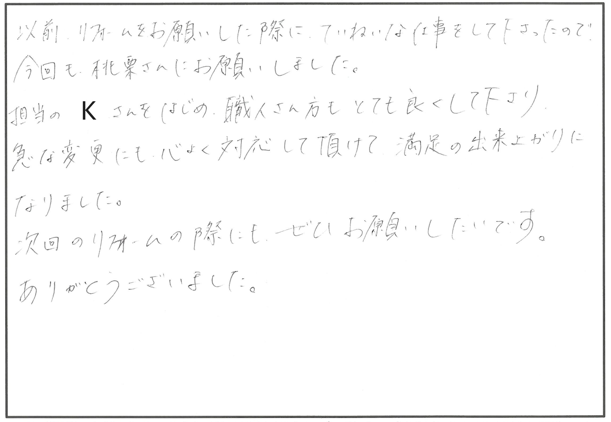 以前、リフォームをお願いした際に、ていねいな仕事をして下さったので
今回も、桃栗さんにお願いしました。
担当の K さんをはじめ、職人さん方もとても良くして下さり、
急な変更にも、心よく対応して頂けて 満足の出来上がりに
なりました。
次回のリフォームの際にも、ぜひお願いしたいです。
ありがとうございました。